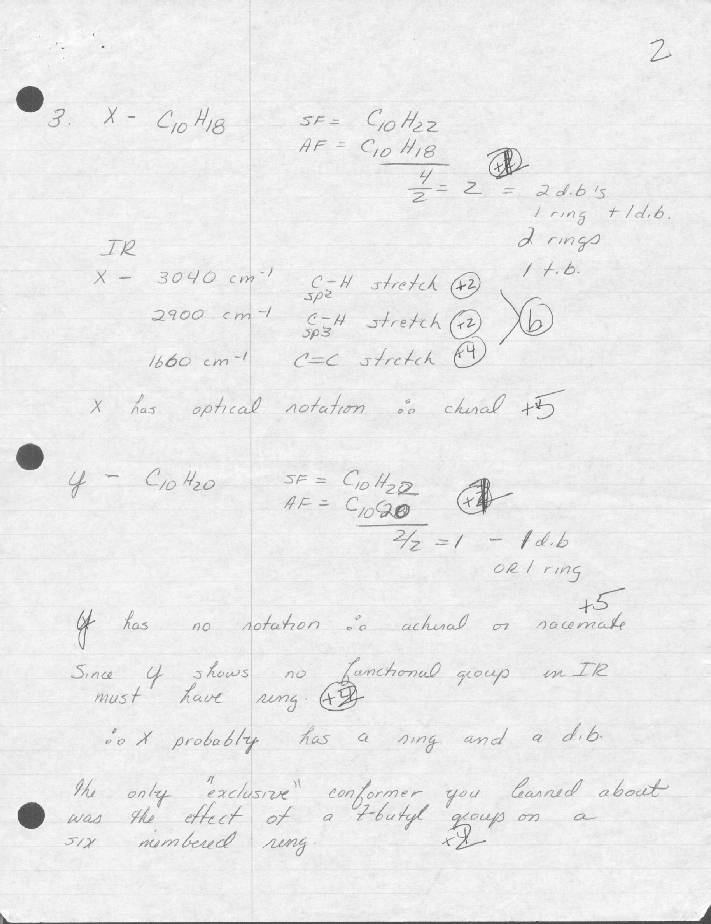 2
3. X - C10H18 SF = C10H22
AF = C10H18
4/2 = 2 = 2 d.b's
1 ring + 1 d.b.
2 rings
1 t.b.
IR
X - 3040 cm-1 C-H sp2 stretch +2
2900 cm-1 C-H sp3 stretch +2 b
1660 cm-1 C=C stretch +4
X has optical notation ∴ chiral +5
y - C10H20 SF = C10H22
AF = C10 20
2/2 = 1 - 1 d.b
OR 1 ring
+5
Y has no rotation ∴ achiral or racemate
Since y shows no functional group in IR
must have ring.
∴ X probably has a ring and a d.b.
The only "exclusive" conformer you learned about
was the effect of a t-butyl group on a
six membered ring.